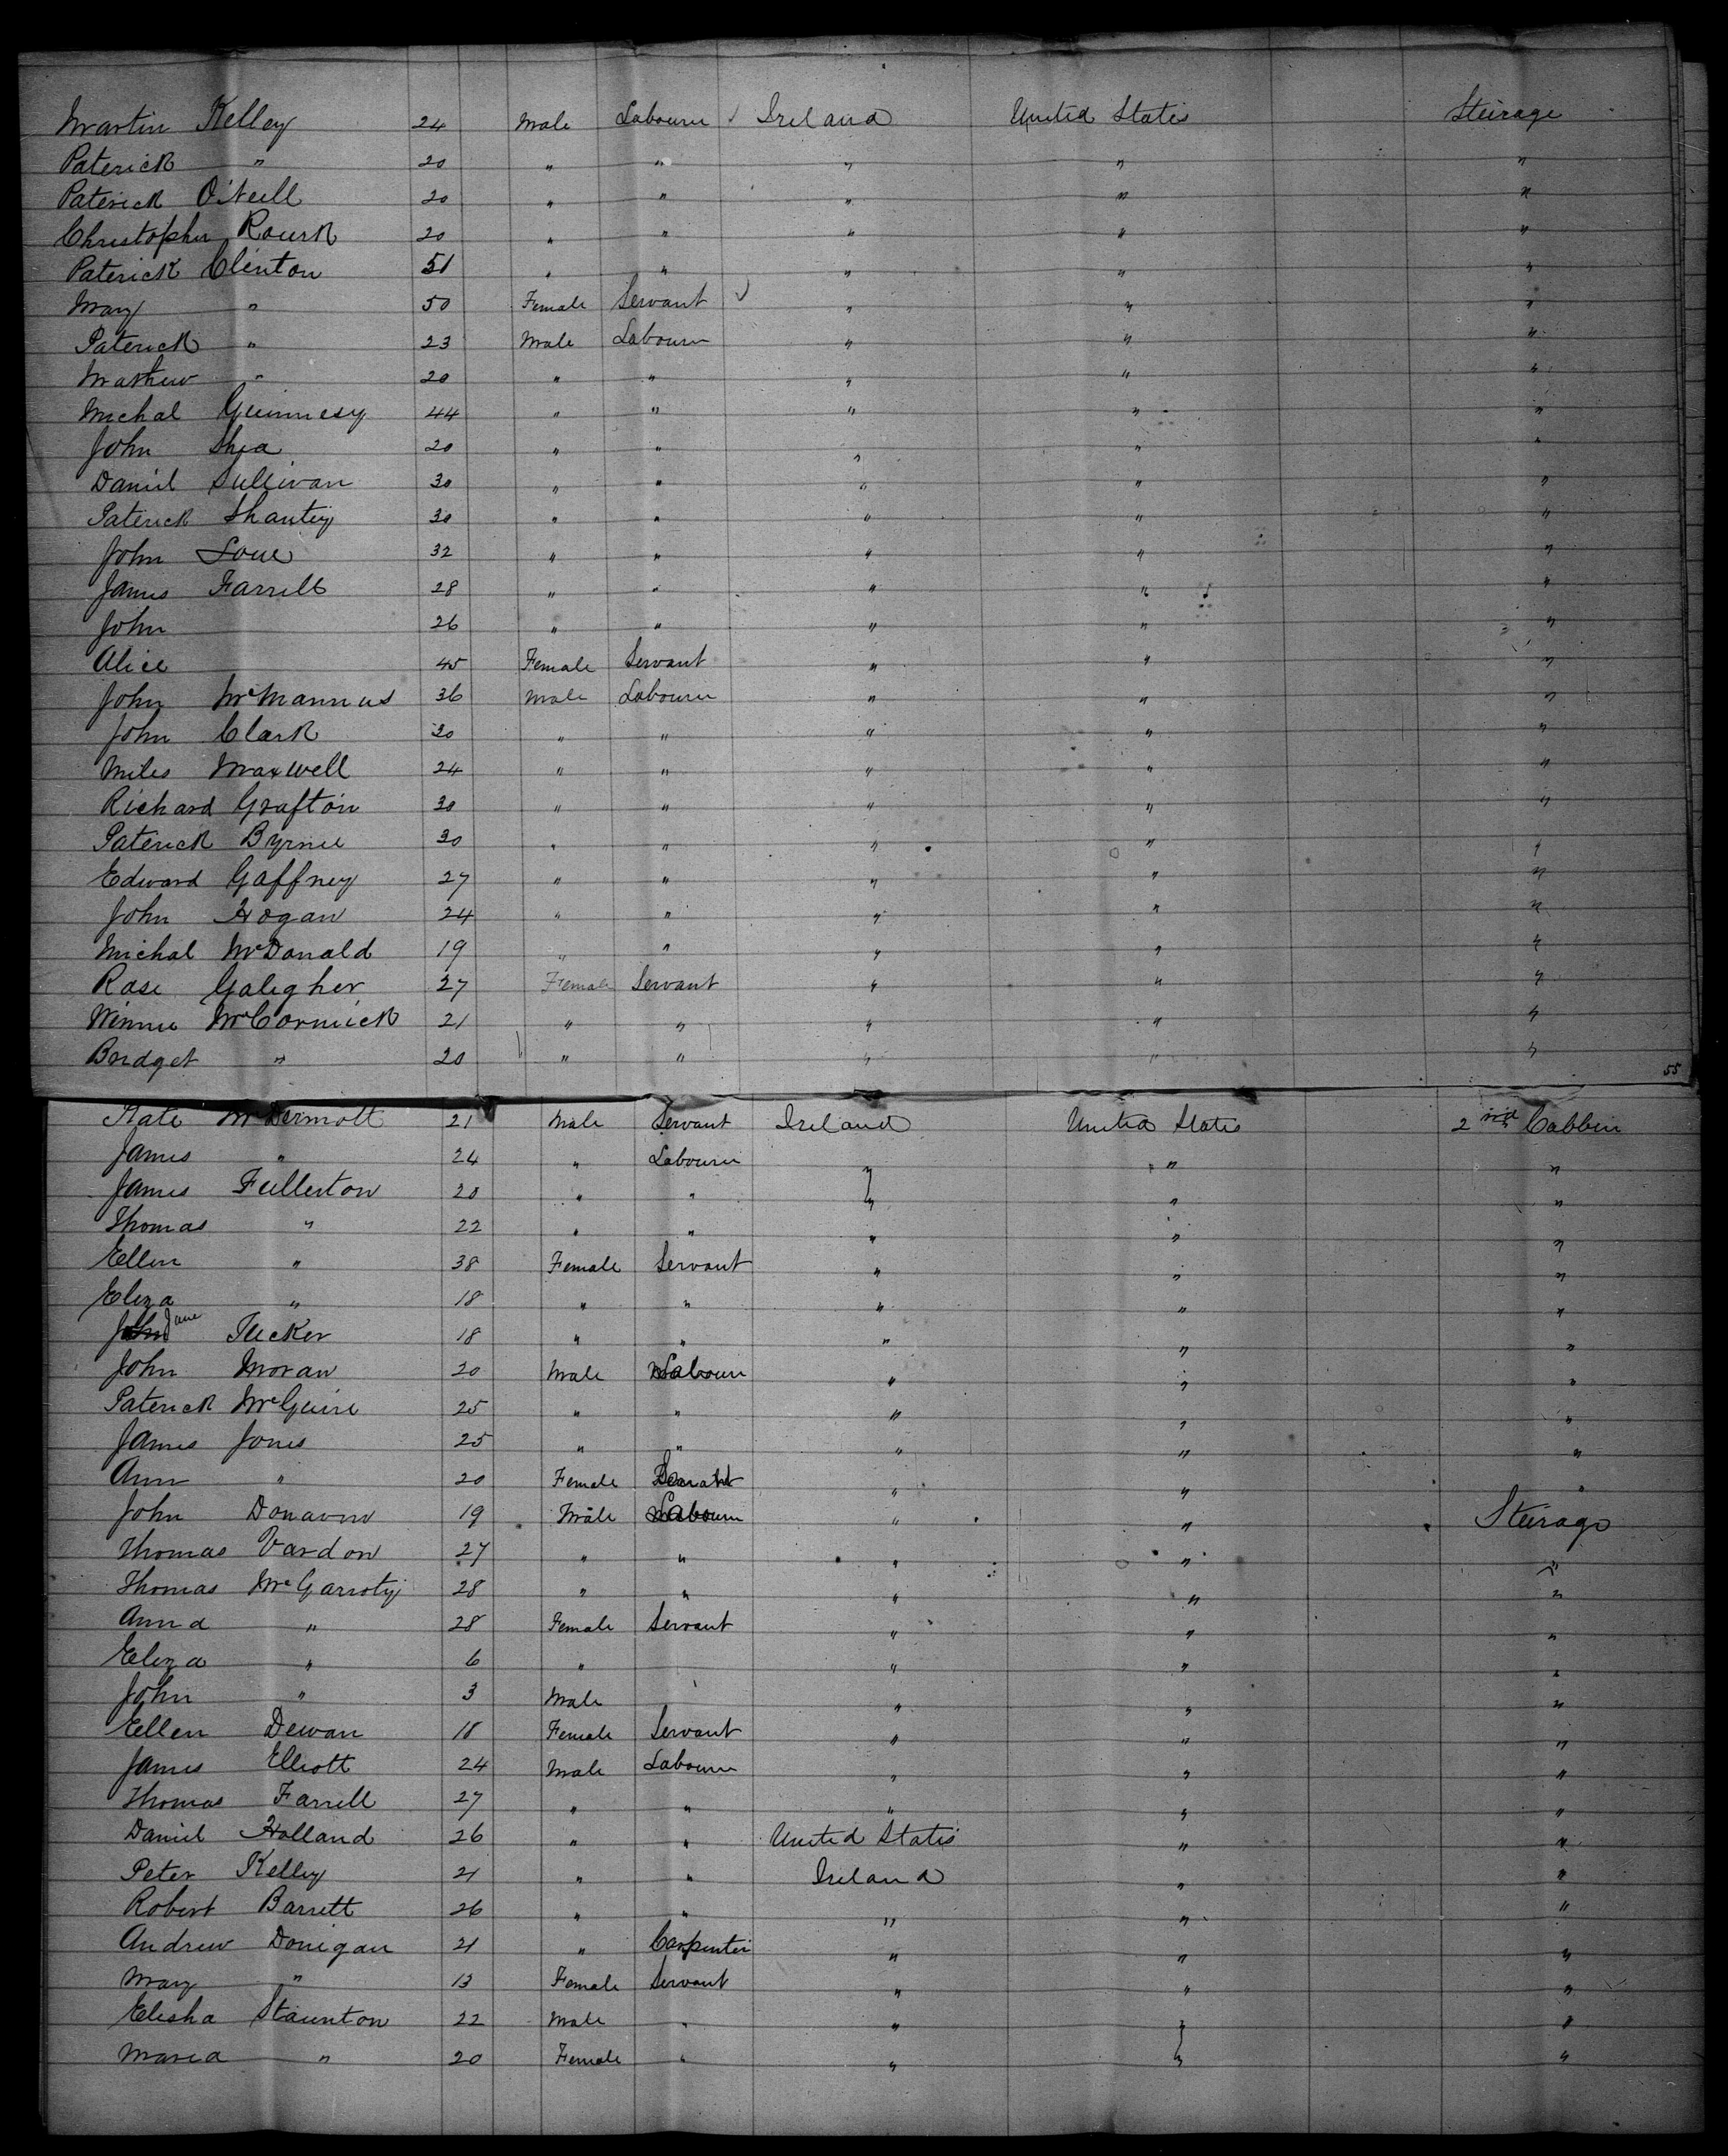 Martin Kelley 24 Male Labourer Ireland United States Steirage
Paterick " 20 " " " " "
Paterick O'Neill 20 " " " " "
Christopher Rourk 20 " " " " "
Paterick Clinton 51 " " " " "
Mary " 50 Female Servant " " "
Paterick " 23 Male Labourer " " "
Mathew " 20 " " " " "
Michal Guinnesy 44 " " " " "
John Shea 20 " " " " "
Daniel Sullivan 30 " " " " "
Paterick Shantey 30 " " " " "
John Love 32 " " " " "
James Farrell 28 " " " " "
John 26 " " " " "
Alice 45 Female Servant " " "
John McMannus 36 Male Labourer " " "
John Clark 30 " " " " "
Miles Maxwell 24 " " " " "
Richard Grafton 30 " " " " "
Paterick Byrne 30 " " " " "
Edward Gaffney 27 " " " " "
John Hogan 24 " " " " "
Michal McDonald 19 " " " " "
Rose Galegher 27 Female Servant " " "
Winnie McCormick 21 " " " " "
Bridget " 20 " " " " "
55
Kate McDermott 21 Male Servant Ireland United States 2nd Cabbin
James " 24 " Labourer " " "
James Fullerton 20 " " " " "
Thomas " 22 " " " " "
Ellen " 38 Female Servant " " "
Eliza " 18 " " " " "
John Jane Tucker 18 " " " " "
John Moran 20 Male Labourer " " "
Paterick McGuire 25 " " " " "
James Jones 25 " " " " "
Ann " 20 Female " " "
John Donavin 19 Male Labourer " " Steirage
Thomas Vardon 27 " " " " "
Thomas McGarroty 28 " " " " "
Anna " 28 Female Servant " " "
Eliza " 6 " " " "
John " 3 Male " " "
Ellen Dewan 18 Female Servant " " "
James Elliott 24 Male Labourer " " "
Thomas Farrell 27 " " " " "
Daniel Holland 26 " " United States " "
Peter Kelley 21 " " Ireland " "
Robert Barrett 26 " " " " "
Andrew Donigan 21 " Carpenter " " "
Mary " 13 Female Servant " " "
Elisha Staunton 22 Male " " " "
Maria " 20 Female " " " "